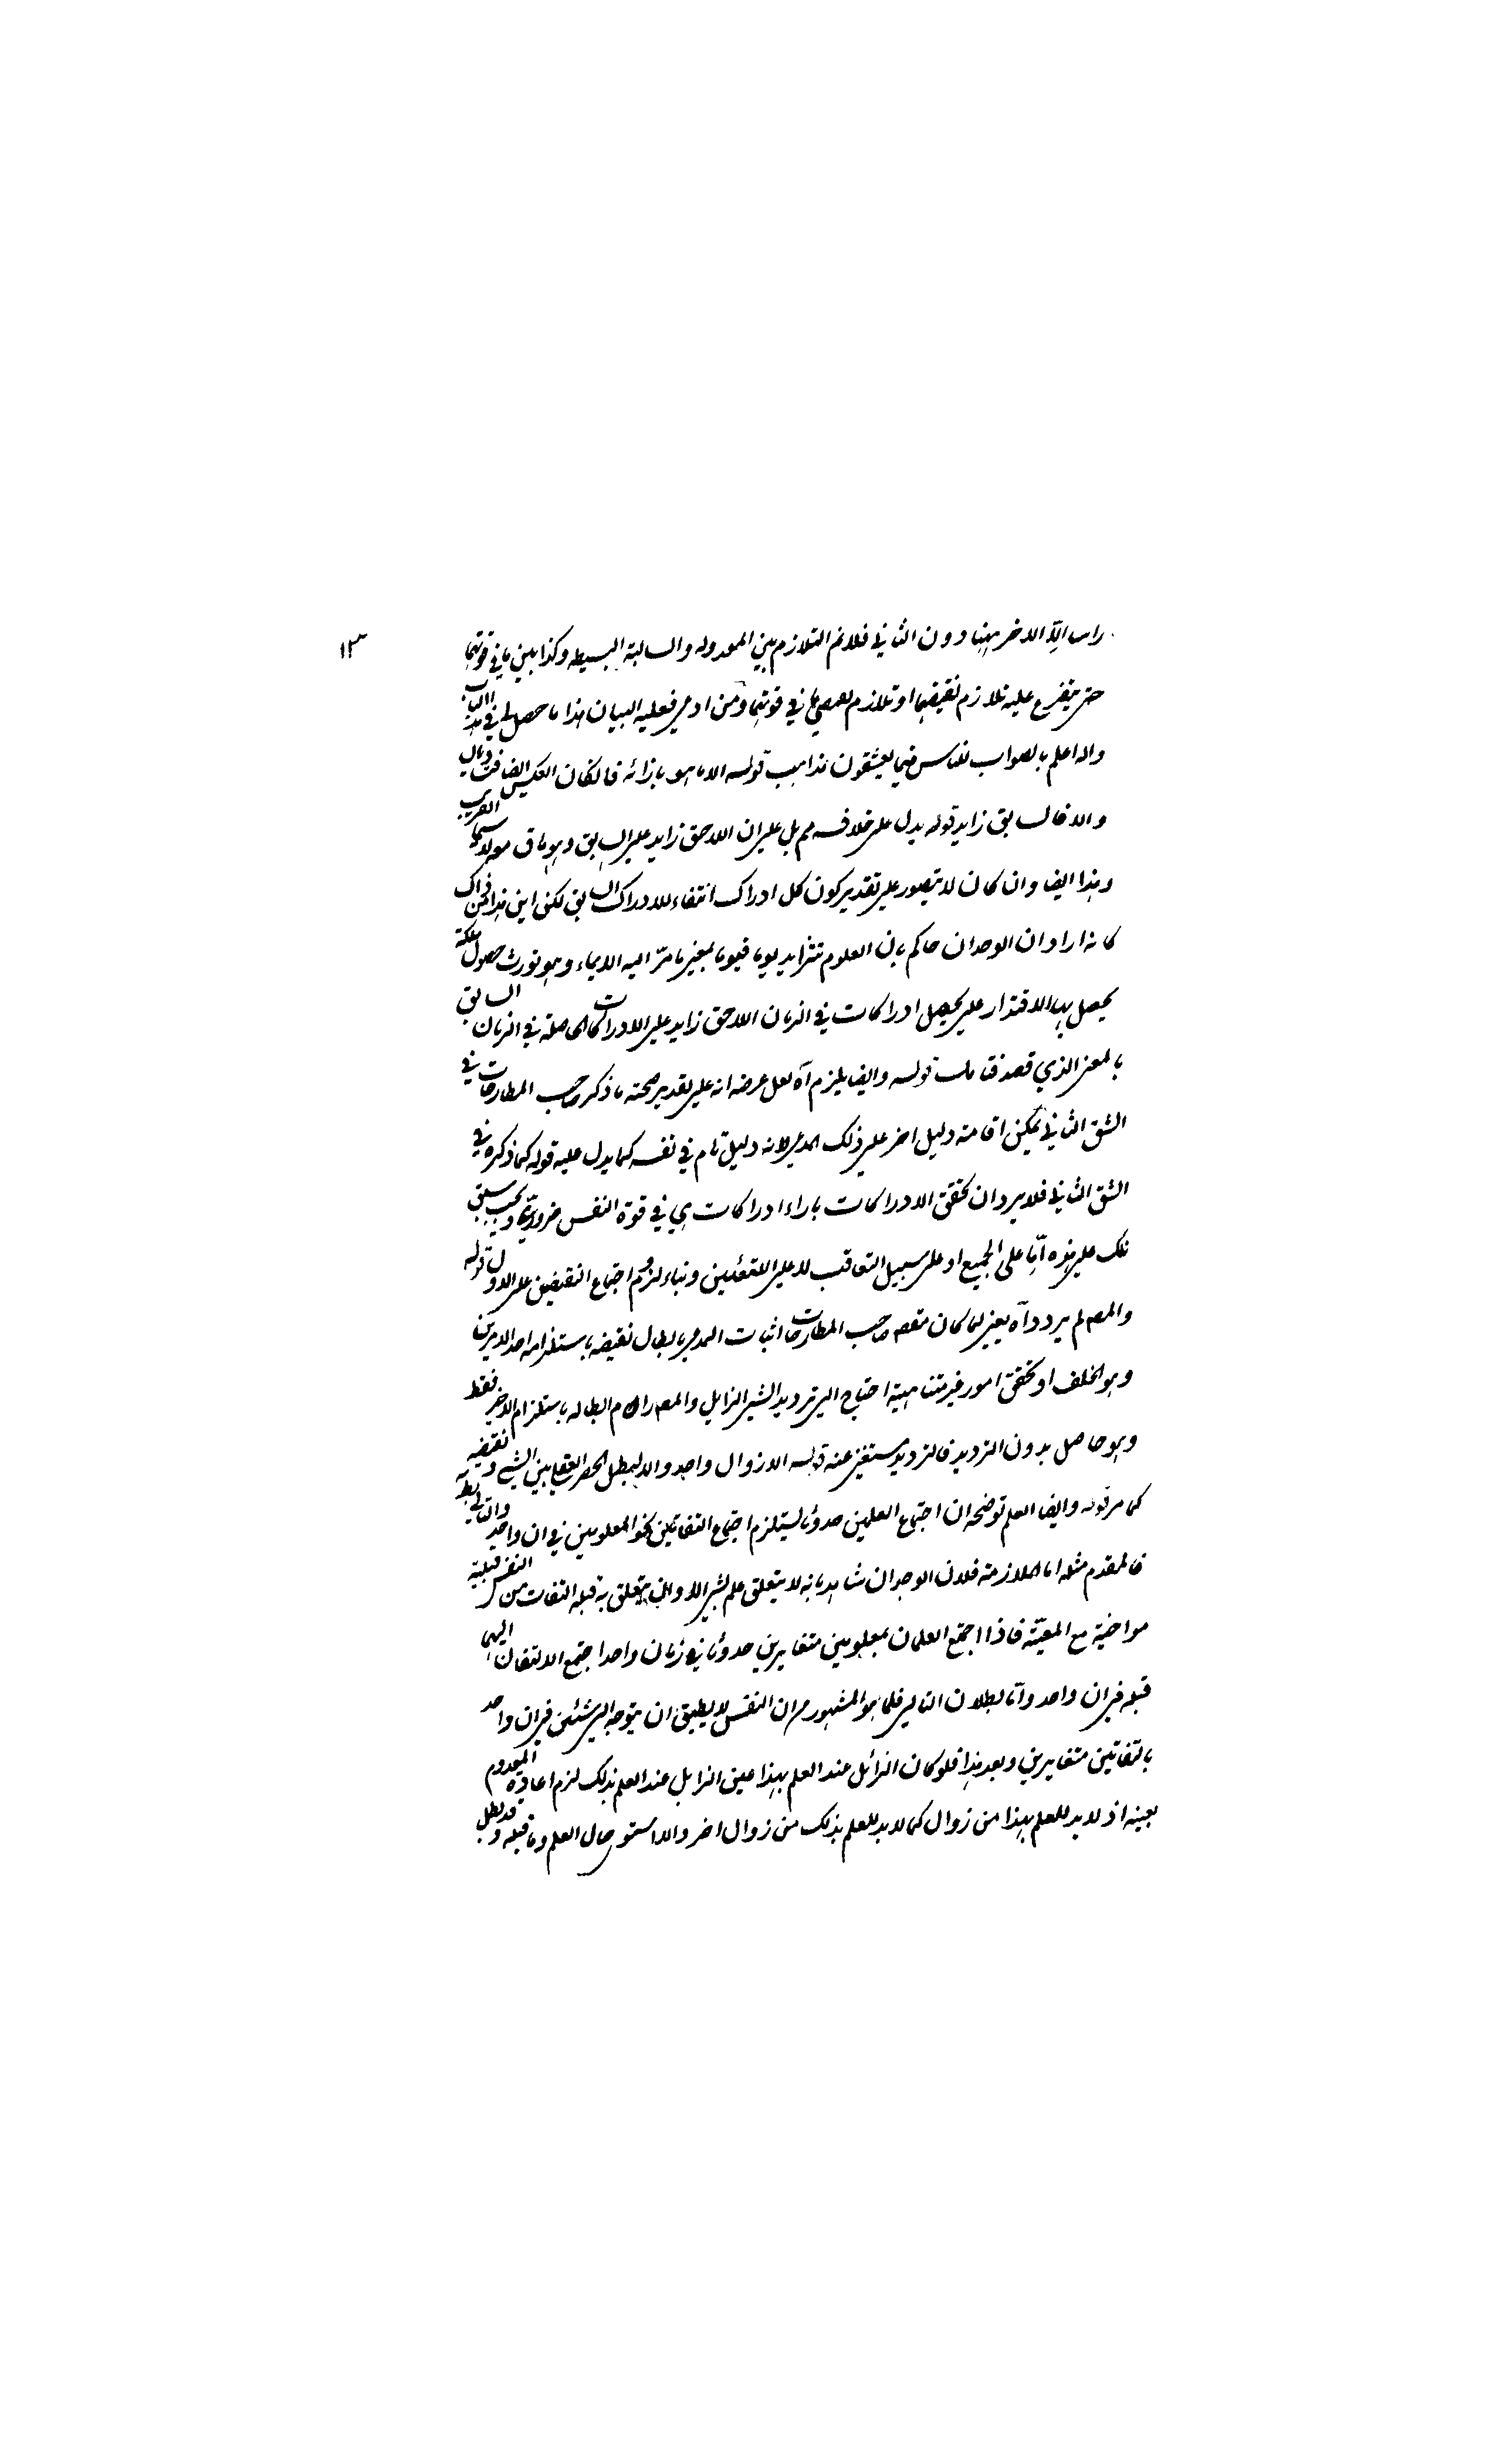 ١٣
راسا الا الاخر ههنا دون الثاني فلانم التلازم بين المعدوله والسالبة البسيطه وكذا بين ما في قوتهما
حتى يتفرع عليه تلازم نقيضهما او تلازم ما في قوتهما ومن ادعى فعليه البيان هذا ما حصل لي في هذا الباب
والله اعلم بالصواب للناس فيما يعشقون مذاهب قوله الا ما هو بازائه فالكان العكس ايضا
والا فالسابق زايد قوله يدل على خلافه مم بل على ان اللاحق زايد على السابق وهو ما
وهذا ايضا وان كان لا يتصور على تقدير كون كل ادراك انتفاء للادراك السابق لكن اين هذا من ذاك
كانه اراد ان الوجدان حاكم بان العلوم تتزايد يوما فيوما بمعنى ما مر اليه الايماء وهو تورث حصول ملكة
يحصل بها الاقتدار على تحصيل ادراكات في الزمان اللاحق زايد على الادراكات الحاصلة في الزمان السابق
بالمعنى الذي قصد فتامل قوله وايضا يلزم اه لعل غرضه انه على تقدير صحته ما ذكر صاحب المطارحات في
الشق الثاني يمكن اقامة دليل اخر على ذلك المدعى لا انه دليل تام في نفسه كما يدل عليه قوله كما ذكره في
الشق الثاني فلا يرد ان تحقق الادراكات بازاء ادراكات هي في قوة النفس ضروري ويجب سبق
تلك على هذه اما على الجميع او على سبيل التعاقب لا على وبناء لزوم اجتماع النقيضين على الاول قوله
والمص لم يردد اه يعني لما كان مقصد صاحب المطارحات اثبات المدعى بابطال نقيضه باستلزامه احد الامرين
وهو الخلف او تحقق امور غير متناهية احتاج الى ترديد الشيء الزايل والمص رام ابطاله باستلزام الاخير فقط
وهو حاصل بدون الترديد فالترديد مستغنى عنه قوله الا زوال واحد والا لبطل الحصر العقلي بين الشيء ونقيضه
كما مر قوله وايضا العلم توضيحه ان اجتماع العلمين حدوثا يستلزم اجتماع التفاتين نحو المعلومين في ان واحد والتالي بط
فالمقدم مثله اما الملازمة فلان الوجدان شاهد بانه لا يتعلق علم بشيء الا وان يتعلق به قبله التفات من النفس قبلية
مع المعية فاذا اجتمع العلمان بمعلومين متغايرين حدوثا في زمان واحد اجتمع الالتفاتان اليهما
قبله في ان واحد واما بطلان التالي فلما هو المشهور من ان النفس لا يطيق ان يتوجه الى شيئين في ان واحد
بالتفاتين متغايرين وبعد هذا فلو كان الزائل عند العلم بهذا عين الزايل عند العلم بذلك لزم اعادة المعدوم
بعينه اذ لا بد للعلم بهذا من زوال كما لا بد للعلم بذلك من زوال اخر والا استوى حال العلم وما قبله وقد بطل